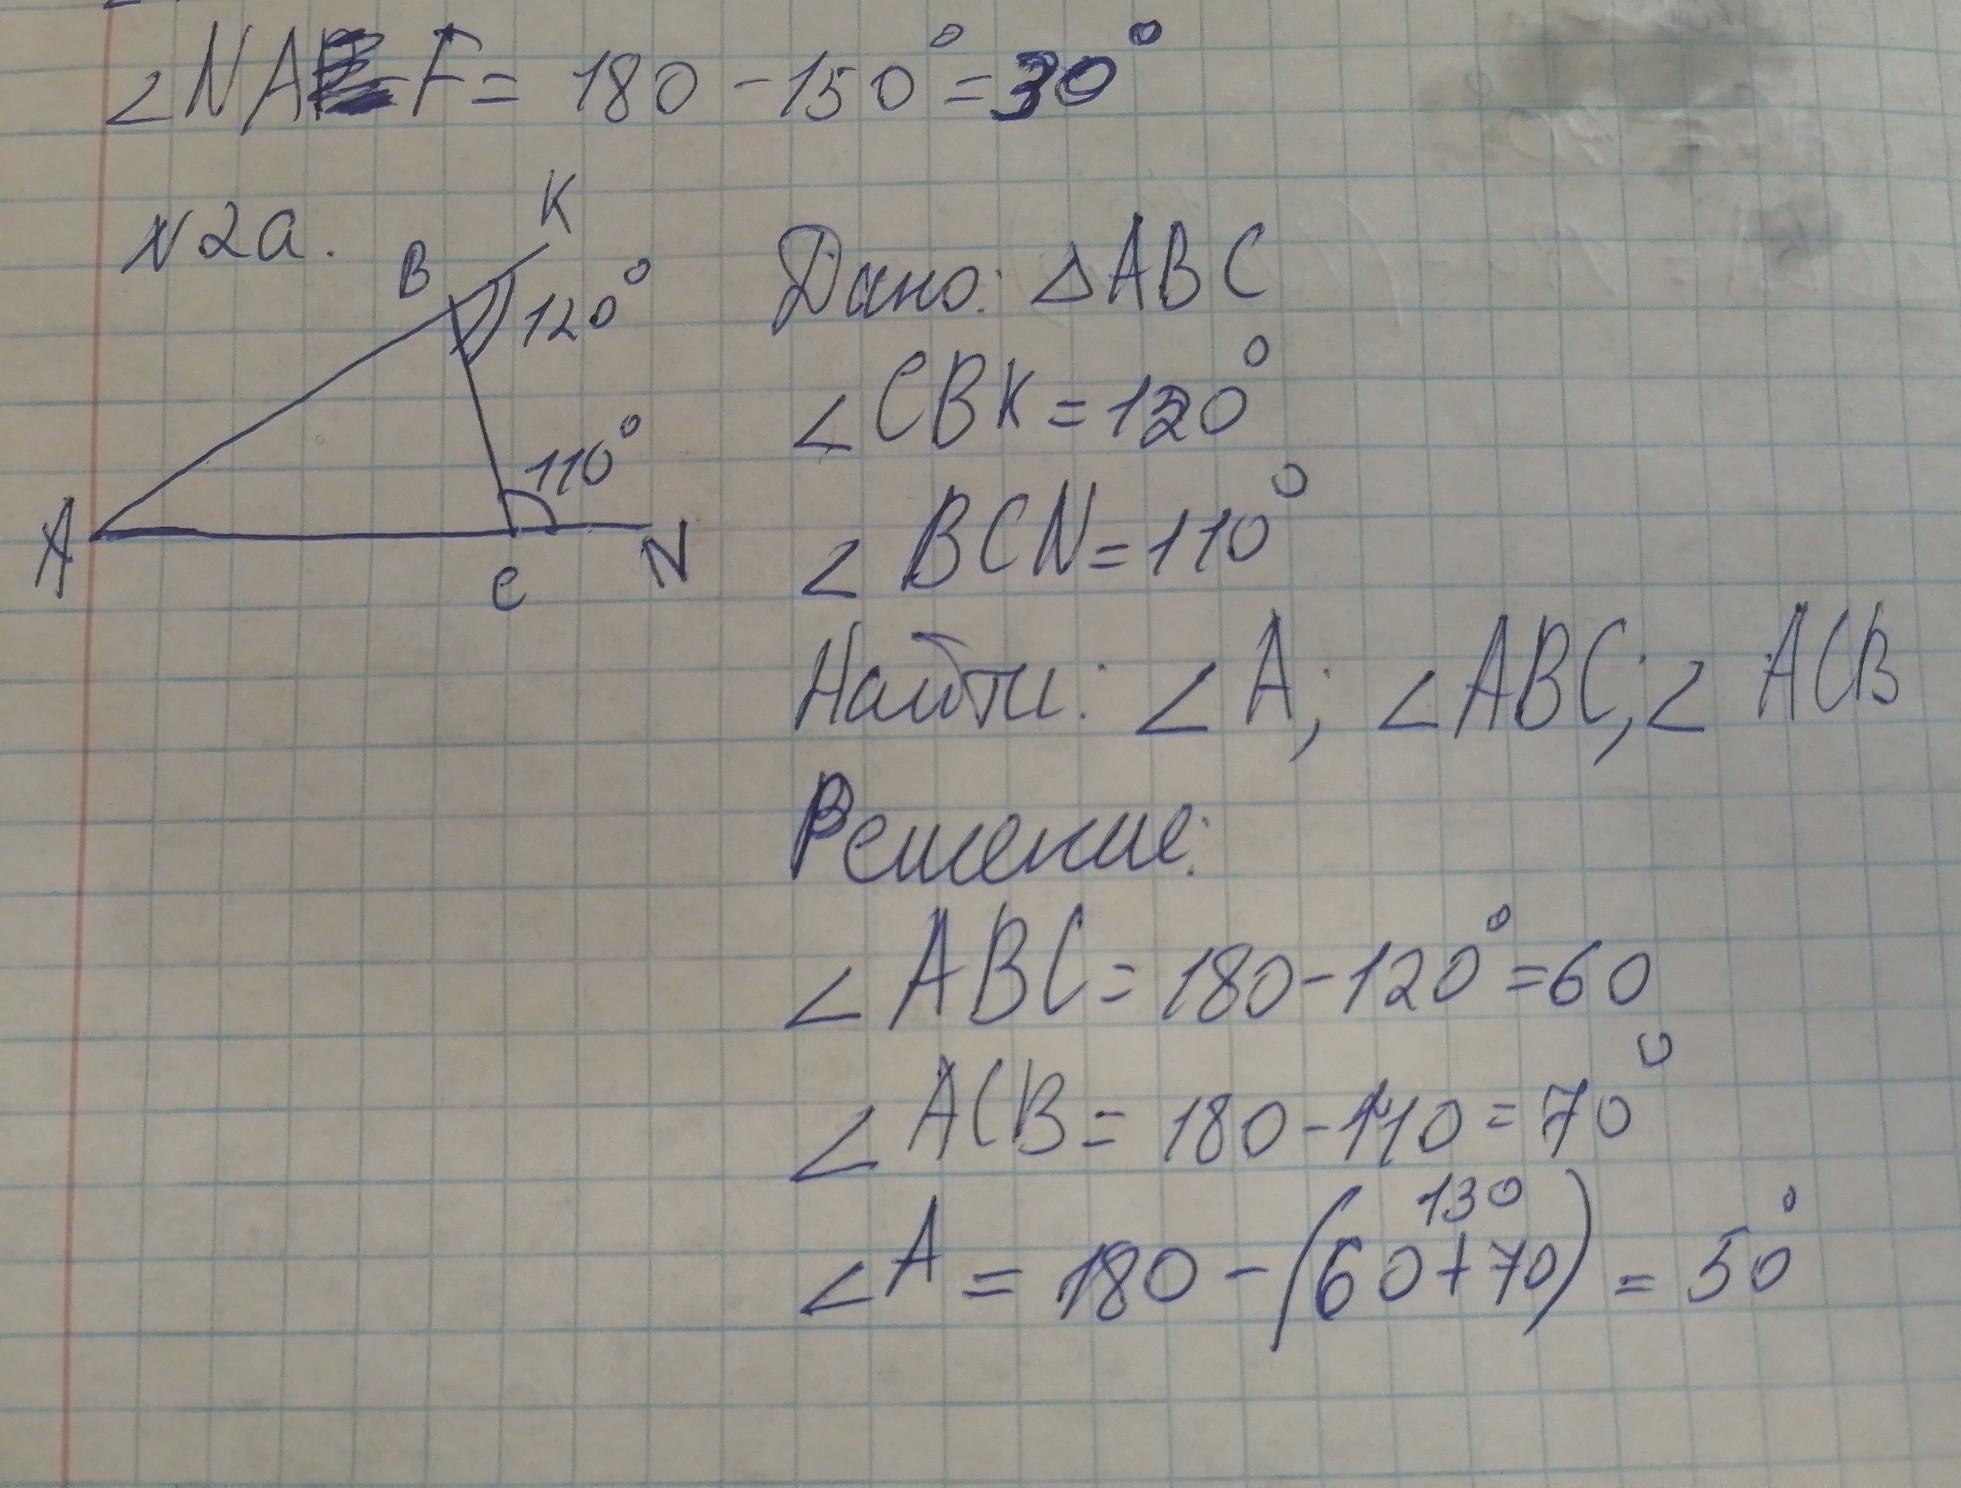 ∠NAF = 180 - 150° = 30°
N2a.
K
B
120°
110°
A
C
N
Дано: △ABC
∠CBK = 120°
∠BCN = 110°
Найти: ∠A; ∠ABC; ∠ACB
Решение:
∠ABC = 180 - 120° = 60
∠ACB = 180 - 110 = 70°
130
∠A = 180 - (60 + 70) = 50°